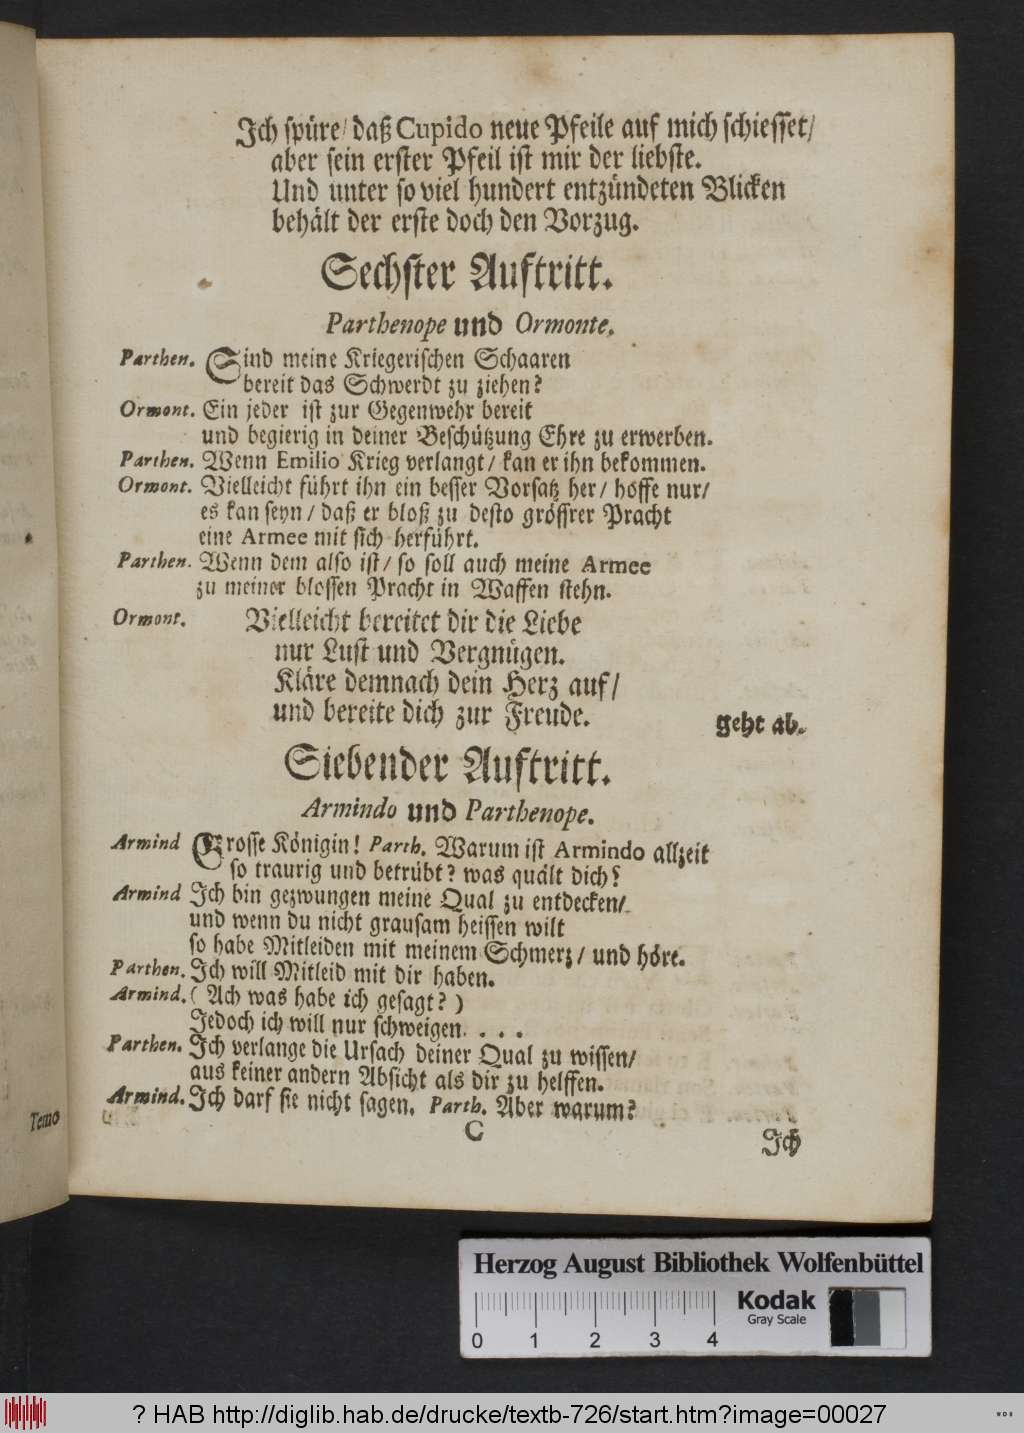 Ich spüre/ daß Cupido neue Pfeile auf mich schiesset/
aber sein erster Pfeil ist mir der liebste.
Und unter so viel hundert entzündeten Blicken
behält der erste doch den Vorzug.
Sechster Auftritt.
Parthenope und Ormonte.
Parthen. Sind meine Kriegerischen Schaaren
bereit das Schwerdt zu ziehen?
Ormont. Ein jeder ist zur Gegenwehr bereit
und begierig in deiner Beschützung Ehre zu erwerben.
Parthen. Wenn Emilio Krieg verlangt/ kan er ihn bekommen.
Ormont. Vielleicht führt ihn ein besser Vorsatz her/ hoffe nur/
es kan seyn/ daß er bloß zu desto grössrer Pracht
eine Armee mit sich herführt.
Parthen. Wenn dem also ist/ so soll auch meine Armee
zu meiner blossen Pracht in Waffen stehn.
Ormont. Vielleicht bereitet dir die Liebe
nur Lust und Vergnügen.
Kläre demnach dein Herz auf/
und bereite dich zur Freude.
geht ab.
Siebender Auftritt.
Armindo und Parthenope.
Armind Grosse Königin! Parth. Warum ist Armindo allzeit
so traurig und betrübt? was quält dich?
Armind Ich bin gezwungen meine Qual zu entdecken/
und wenn du nicht grausam heissen wilt
so habe Mitleiden mit meinem Schmerz/ und höre.
Parthen. Ich will Mitleid mit dir haben.
Armind. (Ach was habe ich gesagt?)
Jedoch ich will nur schweigen. . . .
Parthen. Ich verlange die Ursach deiner Qual zu wissen/
aus keiner andern Absicht als dir zu helffen.
Armind. Ich darf sie nicht sagen. Parth. Aber warum?
C
Ich
Temo
Herzog August Bibliothek Wolfenbüttel
Kodak
Gray Scale
0 1 2 3 4
? HAB http://diglib.hab.de/drucke/textb-726/start.htm?image=00027